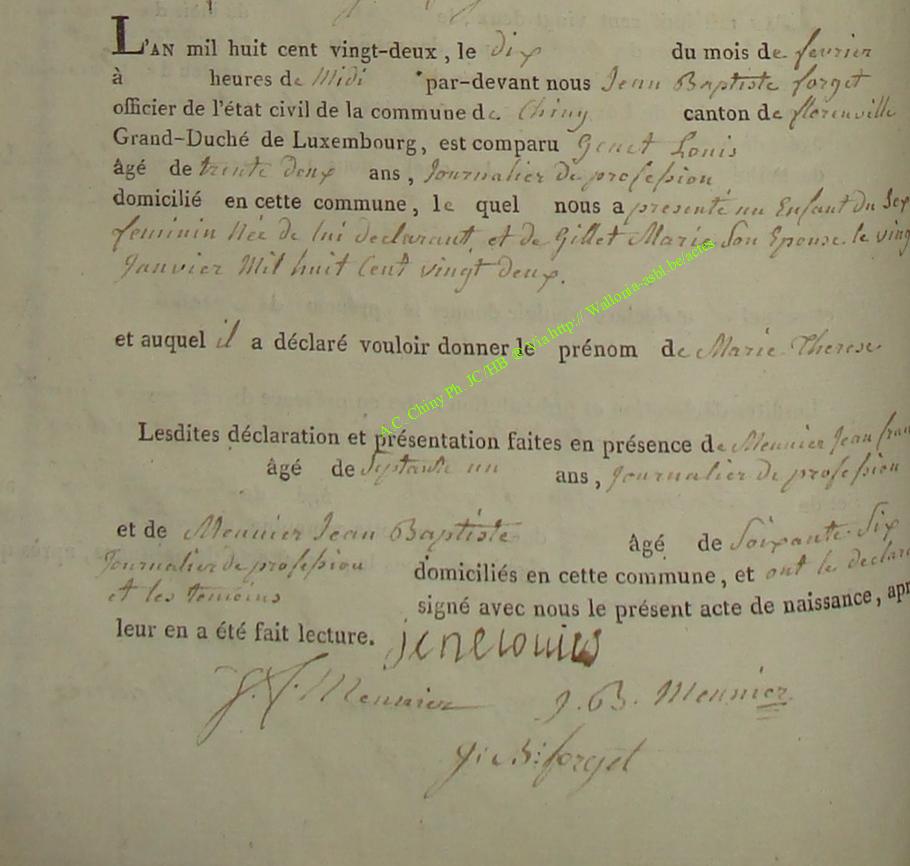 L'AN mil huit cent vingt-deux, le dix du mois de fevrier
à heures de Midi par-devant nous Jean Baptiste forget
officier de l'état civil de la commune de Chiny canton de florenville
Grand-Duché de Luxembourg, est comparu Genet Louis
âgé de trente deux ans, Journalier de profession
domicilié en cette commune, le quel nous a presenté un Enfant du Sex
feminin Née de lui declarant, et de Gillet Marie Son Epouse le ving
Janvier Mil huit Cent vingt deux.
et auquel il a déclaré vouloir donner le prénom de Marie Therese
A.C. Chiny Ph. JC/HB via http:// Wallonia-asbl.be/actes
Lesdites déclaration et présentation faites en présence de Meunier Jean fran
âgé de Septante un ans, Journalier de profession
et de Meunier Jean Baptiste âgé de Soixante Six
Journalier de profession domiciliés en cette commune, et ont le declara
et les temoins signé avec nous le présent acte de naissance, apr
leur en a été fait lecture.
J. f. Meunier J. B. Meunier
J: B: forget